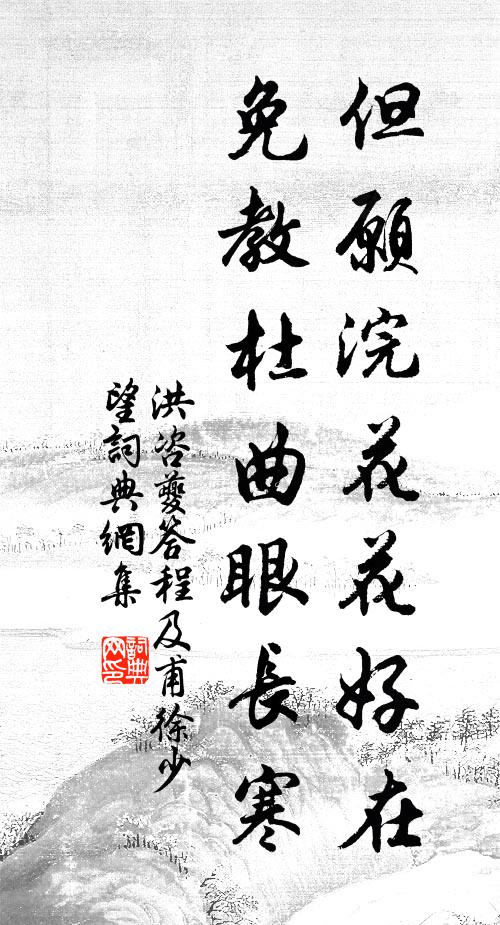 但願浣花花好在
免教杜曲眼長寒
洪咨夔答程及甫徐少
望詞典網集
詞典網印